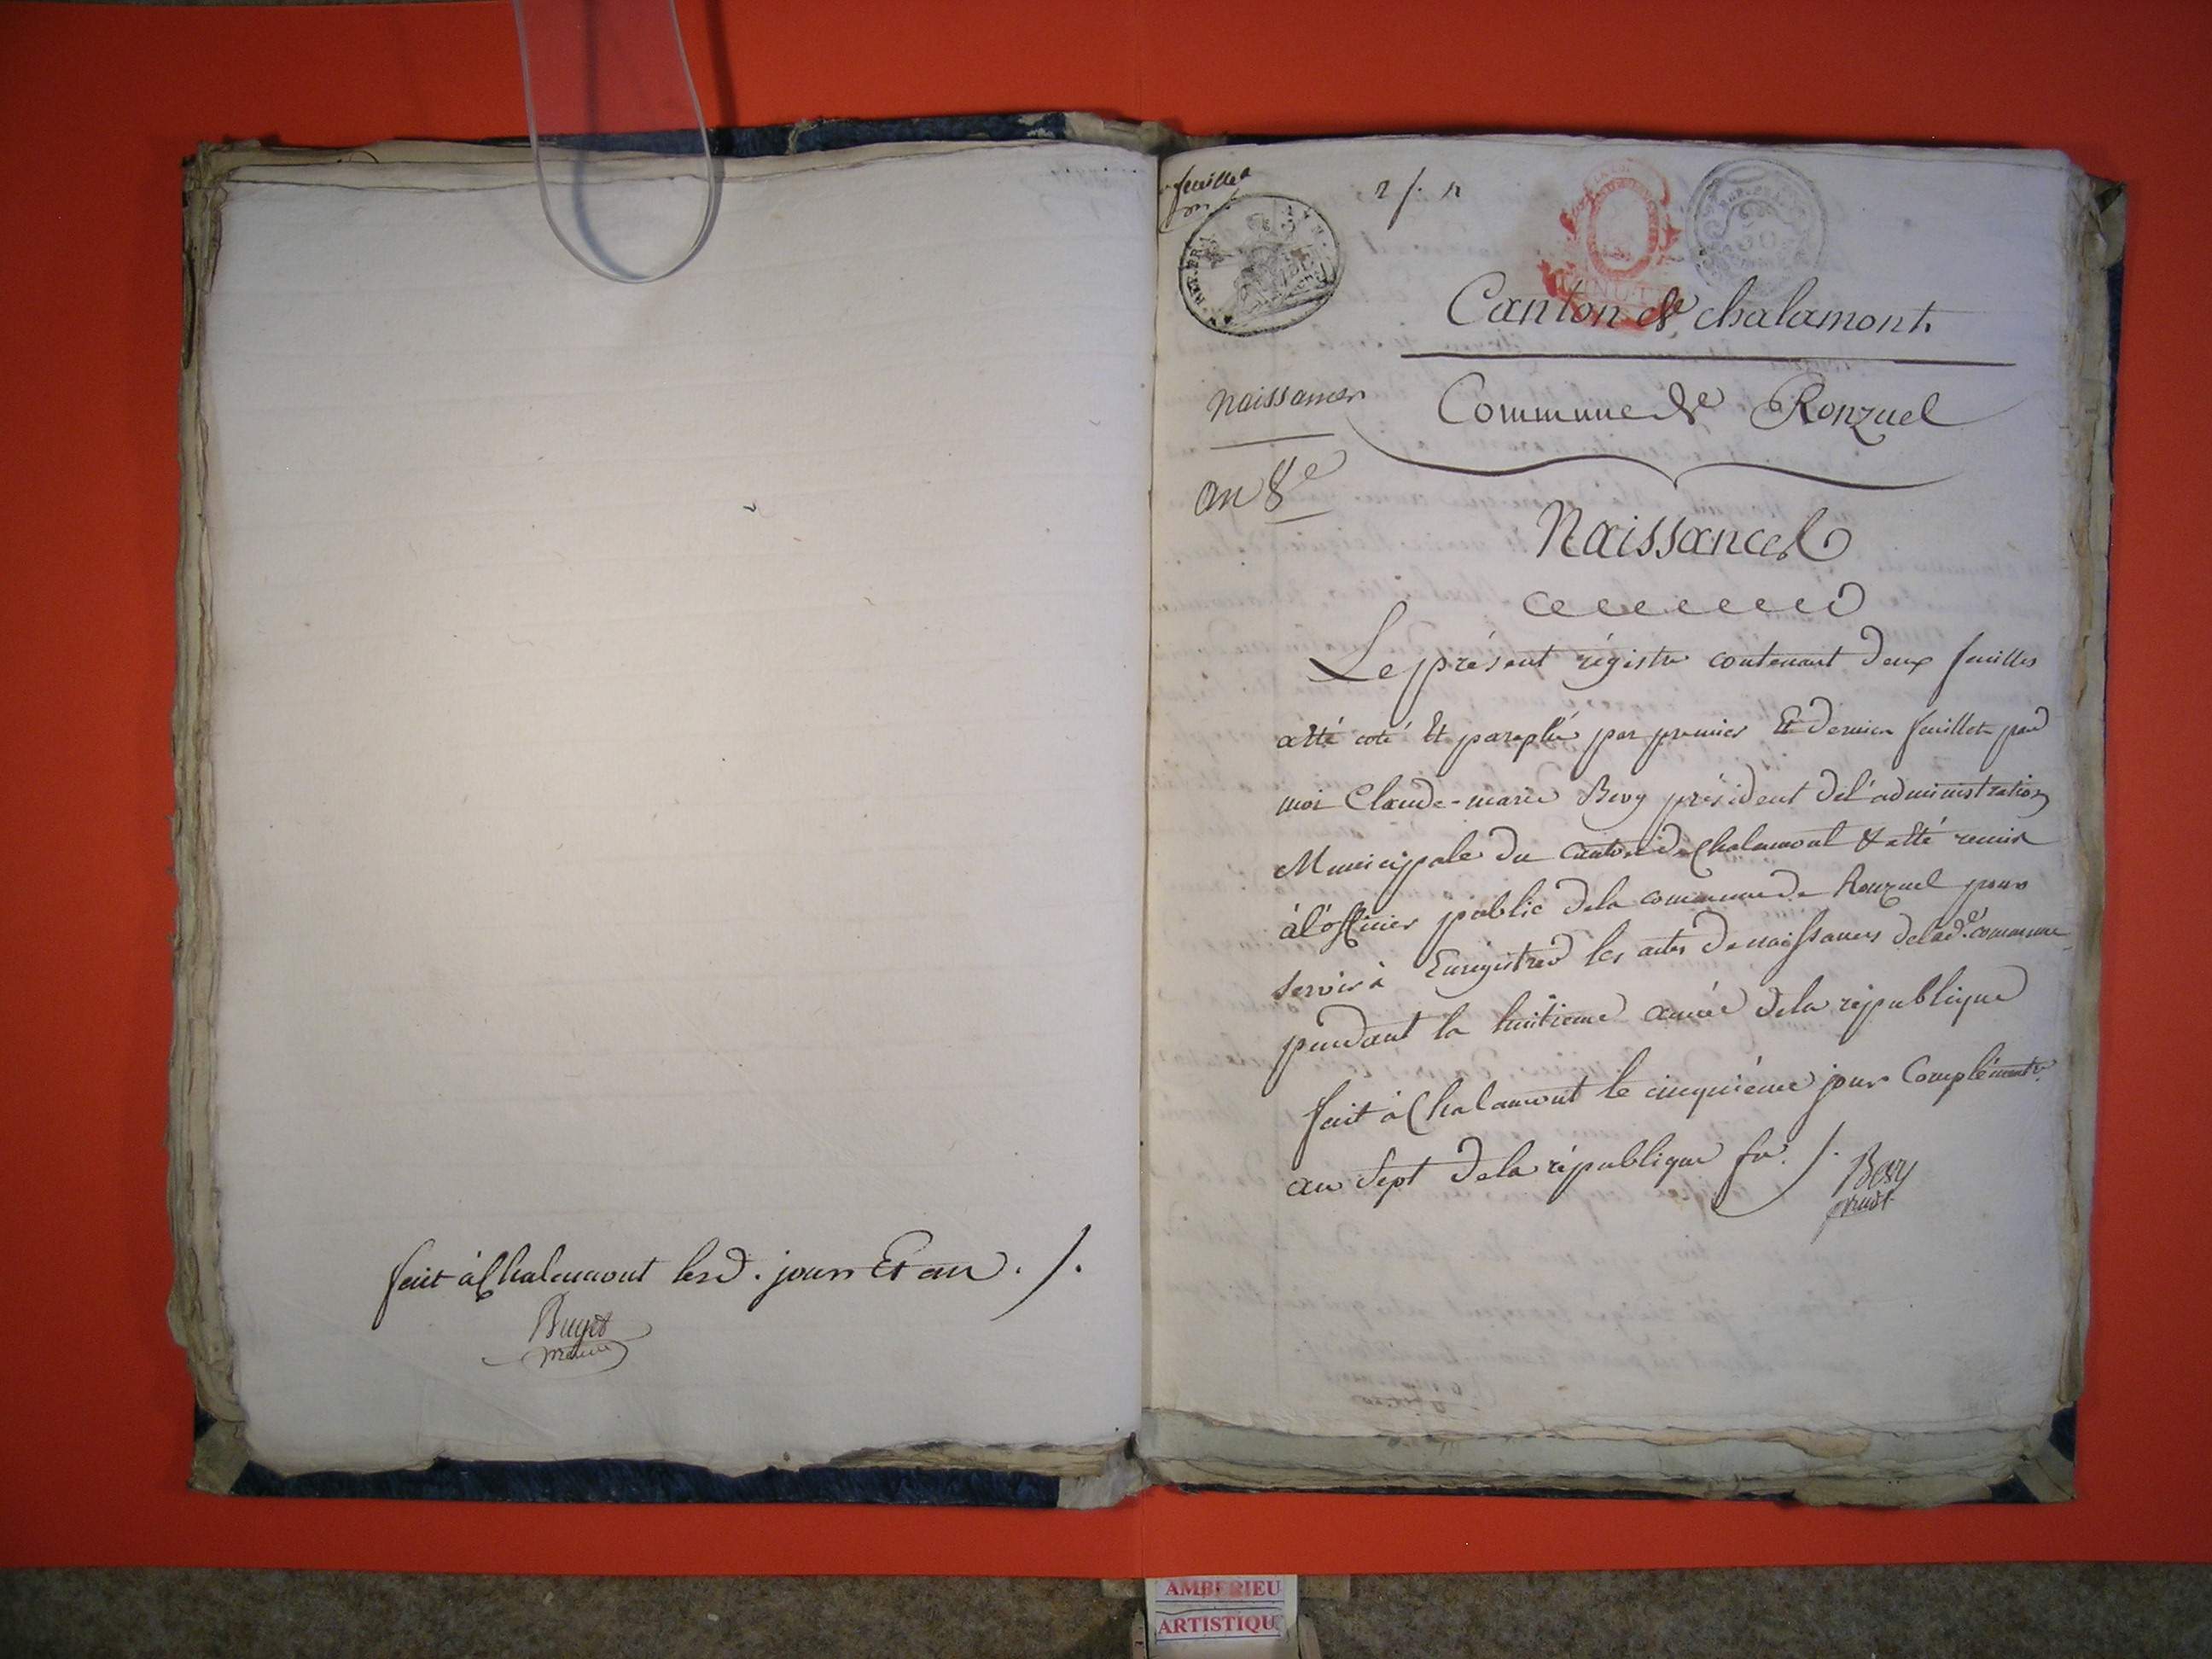 fait à Chalamont lesd. jours Et an ./.
Buynd
feuillet
2 f.
Canton de chalamont
naissances
Commune de Ronzuel
an 8e
Naissances
Le présent régistre contenant deux feuilles
a été coté Et paraphé par premier Et dernier feuillet par
moi Claude-marie Bevy président de l'administration
Municipale du canton de Chalamont & a été remis
à l'officier public de la commune de Ronzuel pour
servir à Enregistrer les actes de naissances de lad.e commune
pendant la huitieme année de la république
fait à Chalamont le cinquième jour Complémentre.
an Sept de la république fse. /.
Bevy
présidt
AMBERIEU
ARTISTIQU